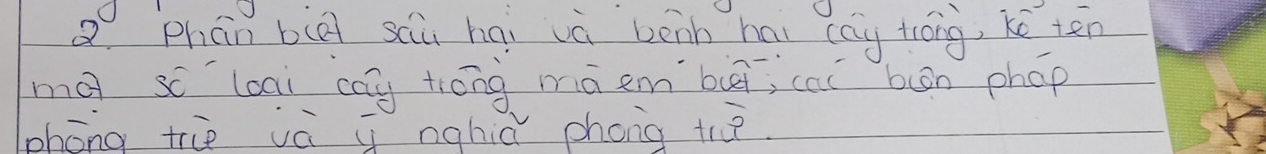 2. Phân biệt sâu hại và bệnh hại cây trồng, kể tên
một số loại cây trồng mà em biết, các biện pháp
phòng trừ và ý nghĩa phòng trừ.